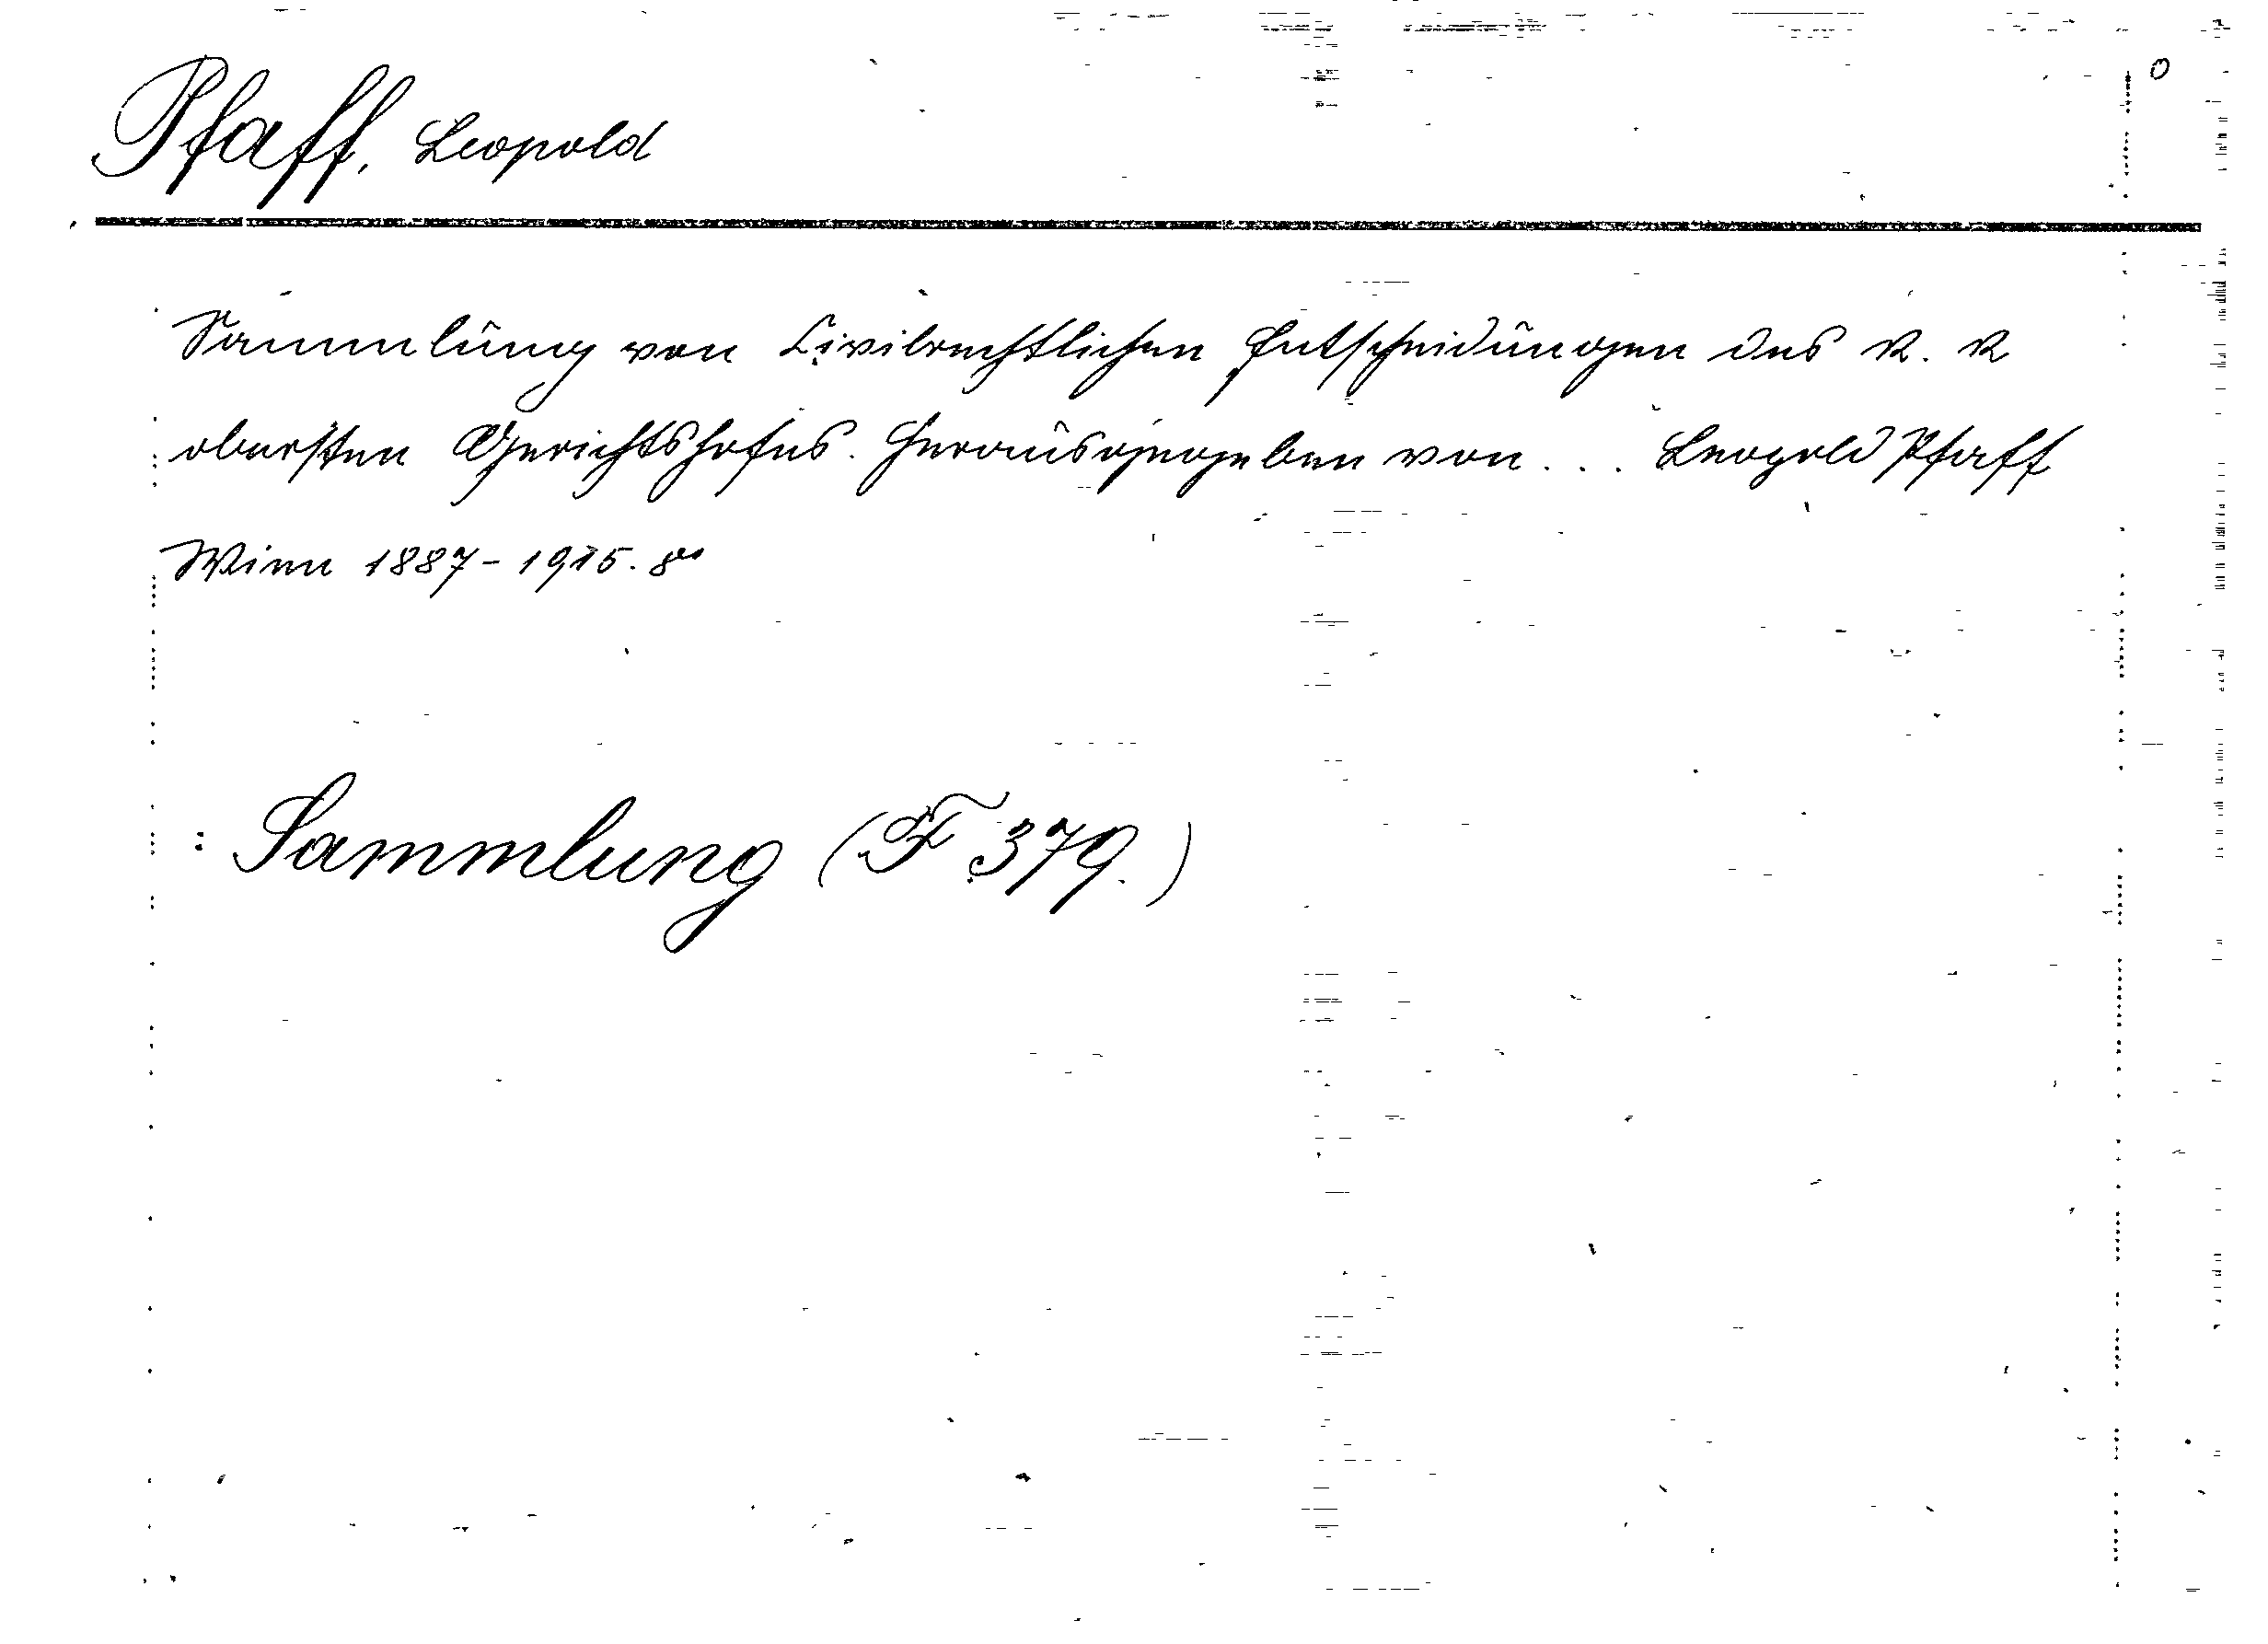 Pfaff, Leopold
Sammlung von Civilrechtlichen Entscheidungen des k. k
obersten Gerichtshofes. Herausgegeben von... Leopold Pfaff
Wien 1887-1915. 8°
: Sammlung (F 379.)